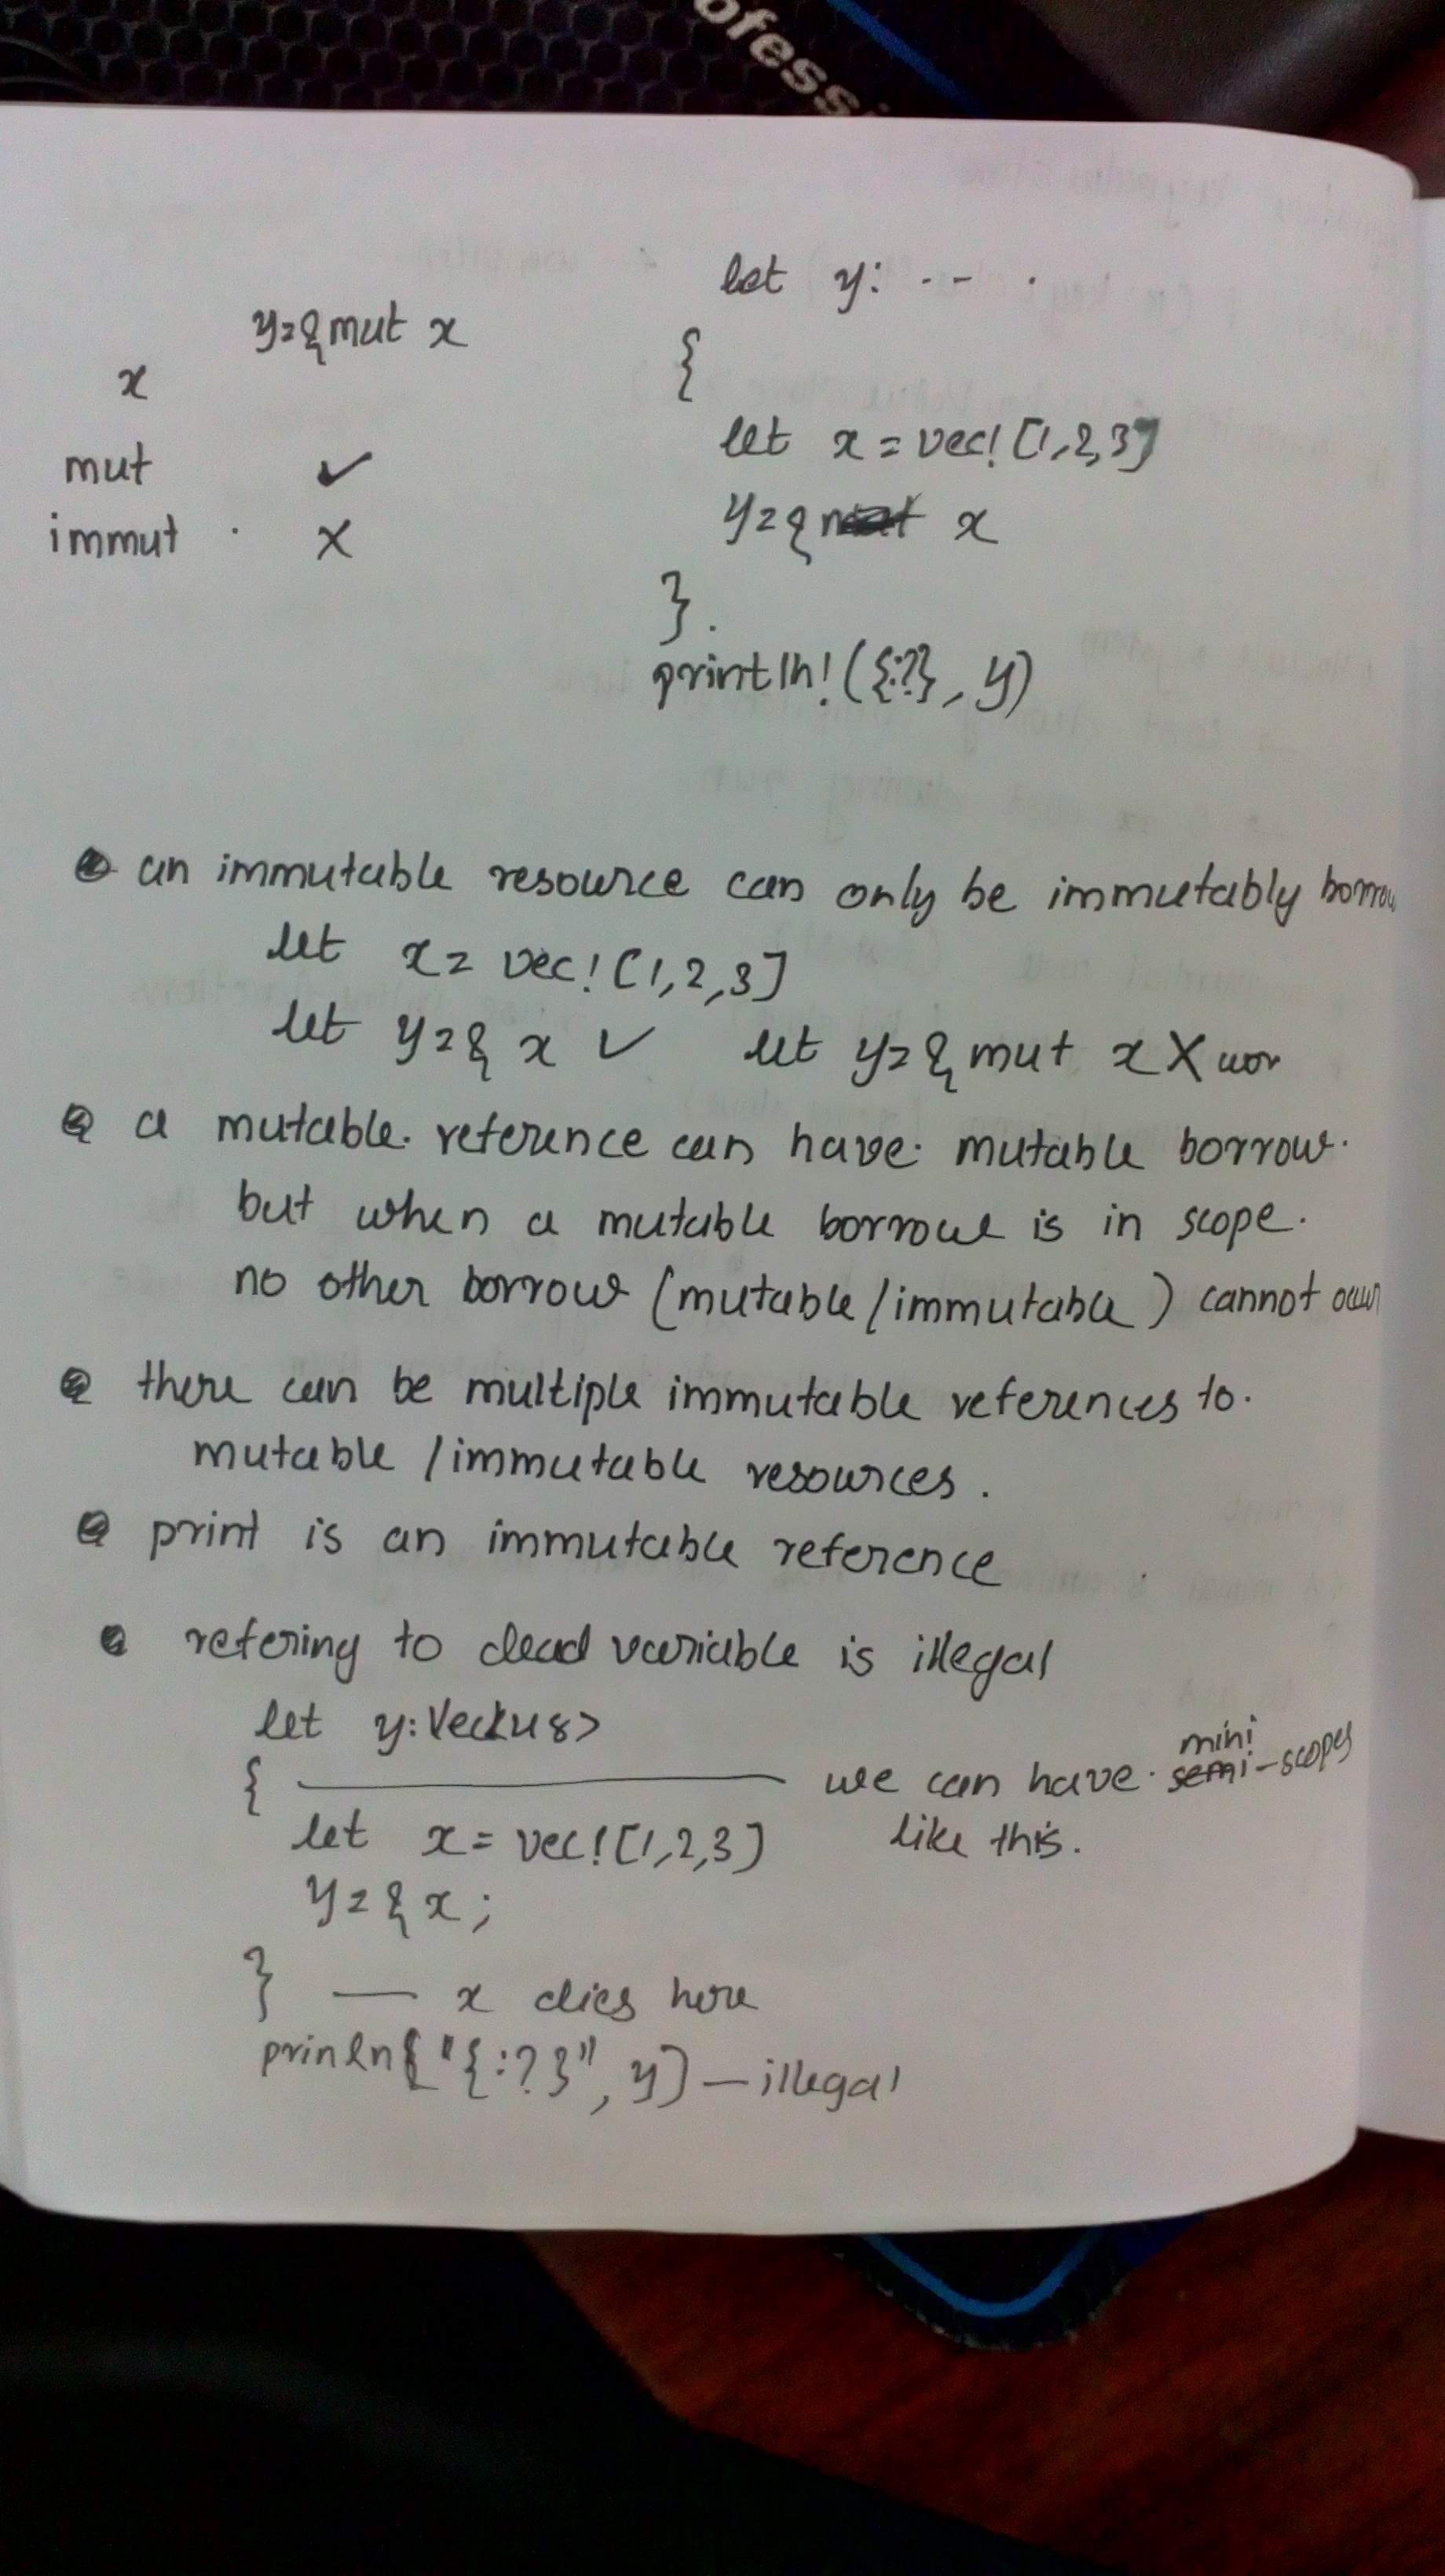 ofessi
y=&mut x
x
mut ✓
immut x
let y: -- .
{
let x = vec! [1,2,3]
y=& x
}.
println! ({:?}, y)
an immutable resource can only be immutably
let x = vec! [1,2,3]
let y=& x ✓ let y=& mut x X
a mutable. reference can have. mutable borrow.
but when a mutable borrow is in scope.
no other borrow (mutable/immutable) cannot
there can be multiple immutable references to.
mutable /immutable resources.
print is an immutable reference
refering to dead variable is illegal
let y: Vec<u8>
{ we can have. mini semi-scopes
let x = vec! [1,2,3] like this.
y = & x;
} — x dies here
prinln("{:?}", y) — illegal